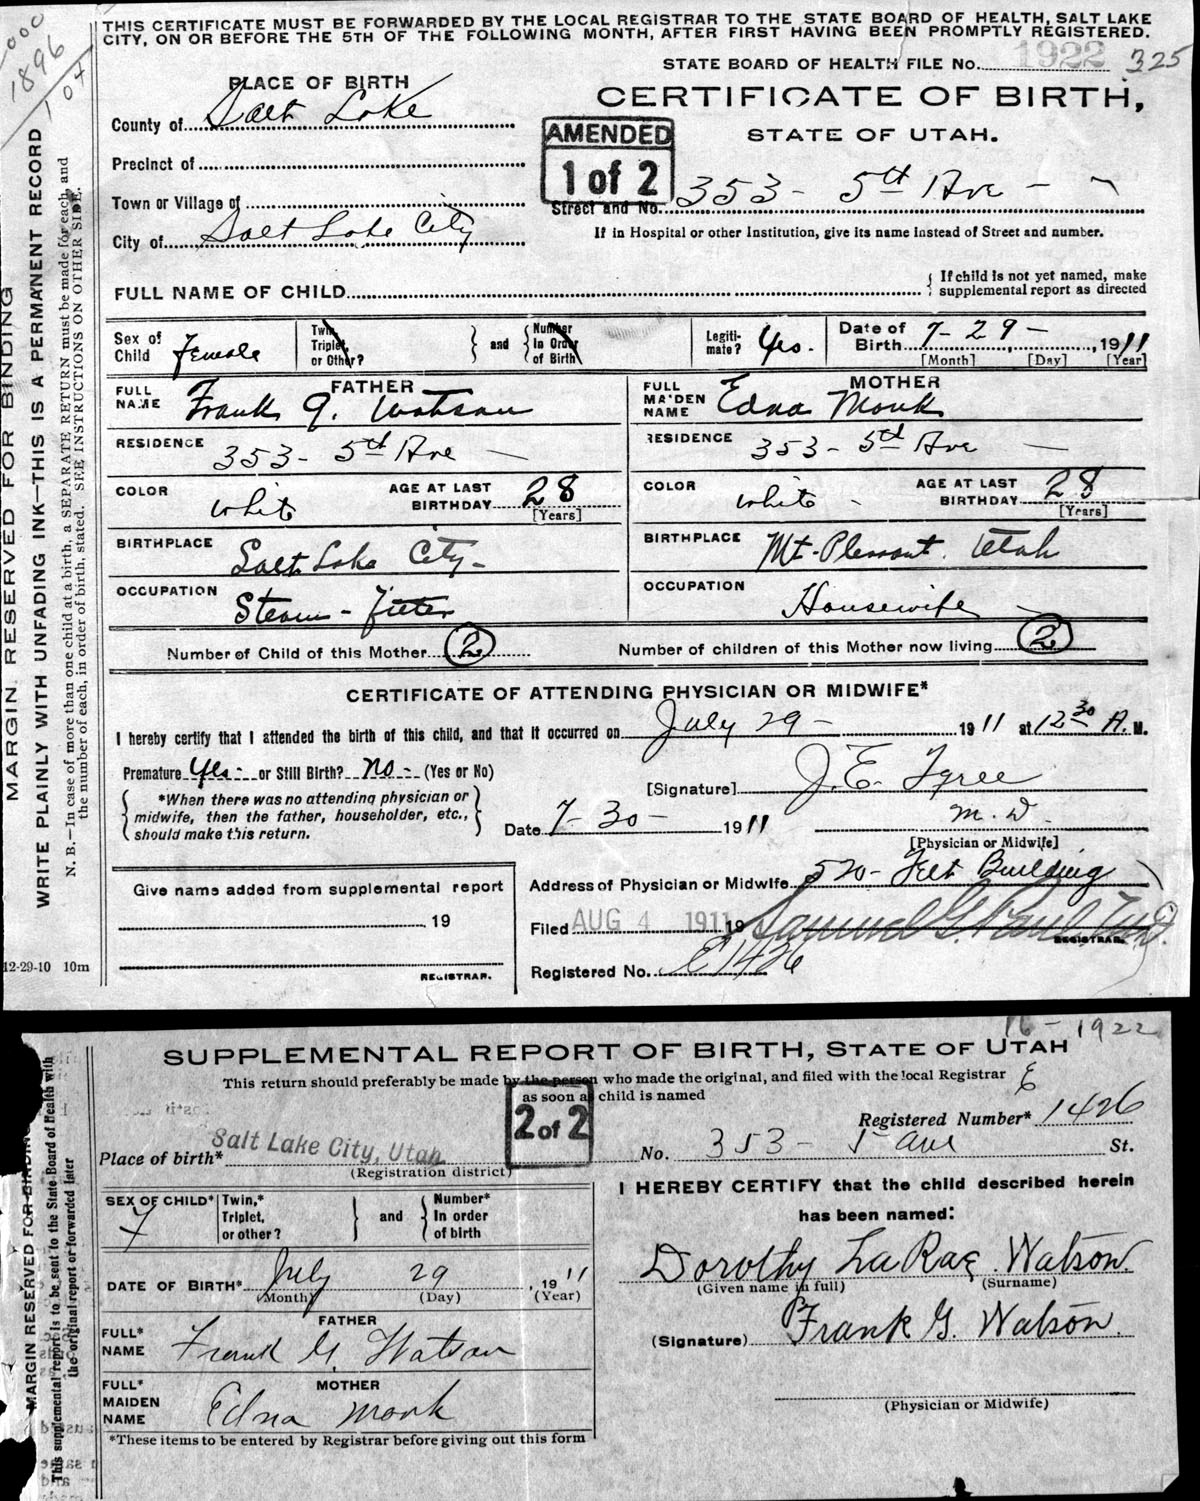 000
1896
104
THIS CERTIFICATE MUST BE FORWARDED BY THE LOCAL REGISTRAR TO THE STATE BOARD OF HEALTH, SALT LAKE
CITY, ON OR BEFORE THE 5TH OF THE FOLLOWING MONTH, AFTER FIRST HAVING BEEN PROMPTLY REGISTERED.
STATE BOARD OF HEALTH FILE No. 1922 325
PLACE OF BIRTH
CERTIFICATE OF BIRTH,
STATE OF UTAH.
AMENDED
1 of 2
County of Salt Lake
Precinct of
Town or Village of
City of Salt Lake City
Street and No. 353 - 5th Ave -
If in Hospital or other Institution, give its name instead of Street and number.
FULL NAME OF CHILD
{ If child is not yet named, make
supplemental report as directed
Sex of Child Female
Twin, Triplet, or Other? } and { Number In Order of Birth
Legiti-mate? Yes.
Date of Birth 7 - 29 - , 1911
[Month] [Day] [Year]
FATHER
FULL NAME Frank G. Watson
MOTHER
FULL MAIDEN NAME Edna Monk
RESIDENCE 353 - 5th Ave -
RESIDENCE 353 - 5th Ave -
COLOR White AGE AT LAST BIRTHDAY 28 [Years]
COLOR White - AGE AT LAST BIRTHDAY 28 [Years]
BIRTHPLACE Salt Lake City -
BIRTHPLACE Mt. Pleasant. Utah
OCCUPATION Steam - Fitter
OCCUPATION Housewife
Number of Child of this Mother 2
Number of children of this Mother now living 2
CERTIFICATE OF ATTENDING PHYSICIAN OR MIDWIFE*
I hereby certify that I attended the birth of this child, and that it occurred on July 29 - 1911 at 12 30 A. M.
Premature Yes - or Still Birth? No - (Yes or No)
[Signature] J. E. Tyree
{ *When there was no attending physician or
midwife, then the father, householder, etc.,
should make this return. }
Date 7 - 30 - 1911 M. D.
[Physician or Midwife]
Give name added from supplemental report
19
REGISTRAR.
Address of Physician or Midwife 520 - Felt Building
Filed AUG 4 1911 19 Samuel G. Paul
REGISTRAR.
Registered No. E 1426
MARGIN RESERVED FOR BINDING
WRITE PLAINLY WITH UNFADING INK—THIS IS A PERMANENT RECORD
N. B.—In case of more than one child at a birth, a SEPARATE RETURN must be made for each, and
the number of each, in order of birth, stated. SEE INSTRUCTIONS ON OTHER SIDE.
12-29-10 10m
16 - 1922
SUPPLEMENTAL REPORT OF BIRTH, STATE OF UTAH
This return should preferably be made by the person who made the original, and filed with the local Registrar
as soon as child is named
2 of 2
E
Registered Number* 1426
Place of birth* Salt Lake City, Utah No. 353 - 5 Ave St.
(Registration district)
SEX OF CHILD* F
Twin,* Triplet, or other? } and { Number* In order of birth
I HEREBY CERTIFY that the child described herein
has been named:
DATE OF BIRTH* July 29 , 1911
(Month) (Day) (Year)
Dorothy LaRae Watson.
(Given name in full) (Surname)
FATHER
FULL* NAME Frank G. Watson
(Signature) Frank G. Watson.
MOTHER
FULL* MAIDEN NAME Edna Monk
(Physician or Midwife)
*These items to be entered by Registrar before giving out this form
MARGIN RESERVED FOR BINDING
This supplemental report is to be sent to the State Board of Health with
the original report or forwarded later